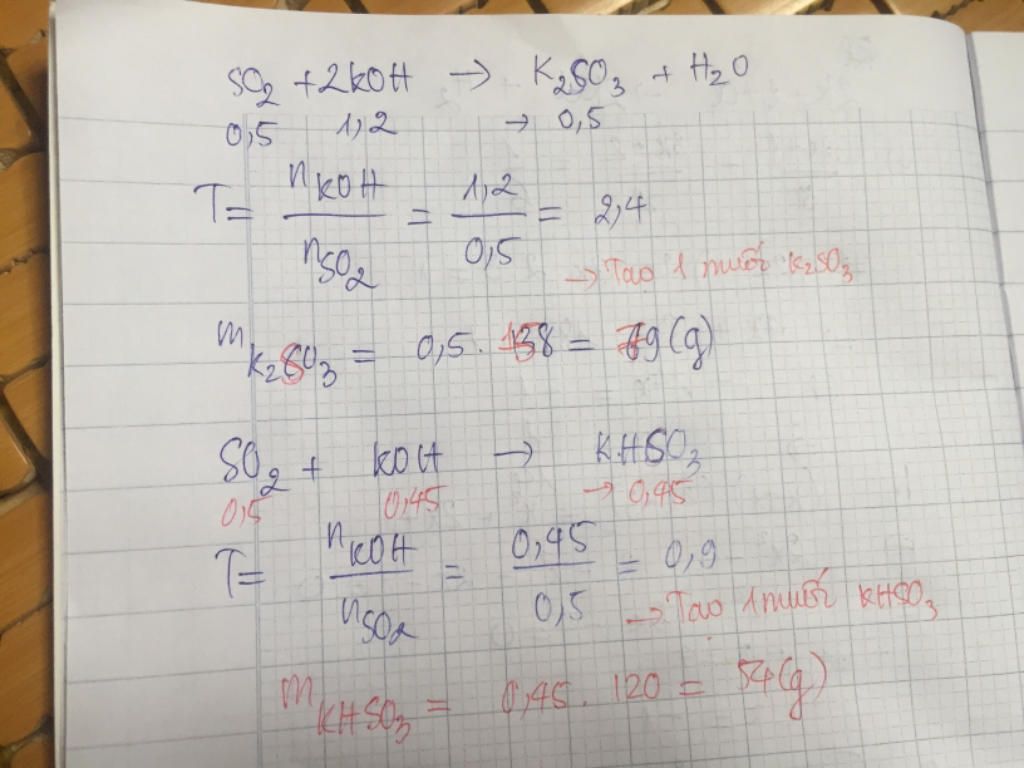 SO₂ + 2KOH → K₂SO₃ + H₂O
0,5 1,2 → 0,5
T = nKOH / nSO₂ = 1,2 / 0,5 = 2,4
→ Tạo 1 muối K₂SO₃
mK₂SO₃ = 0,5 . 158 = 79 (g)
SO₂ + KOH → KHSO₃
0,5 0,45 → 0,45
T = nKOH / nSO₂ = 0,45 / 0,5 = 0,9
→ Tạo 1 muối KHSO₃
mKHSO₃ = 0,45 . 120 = 54 (g)